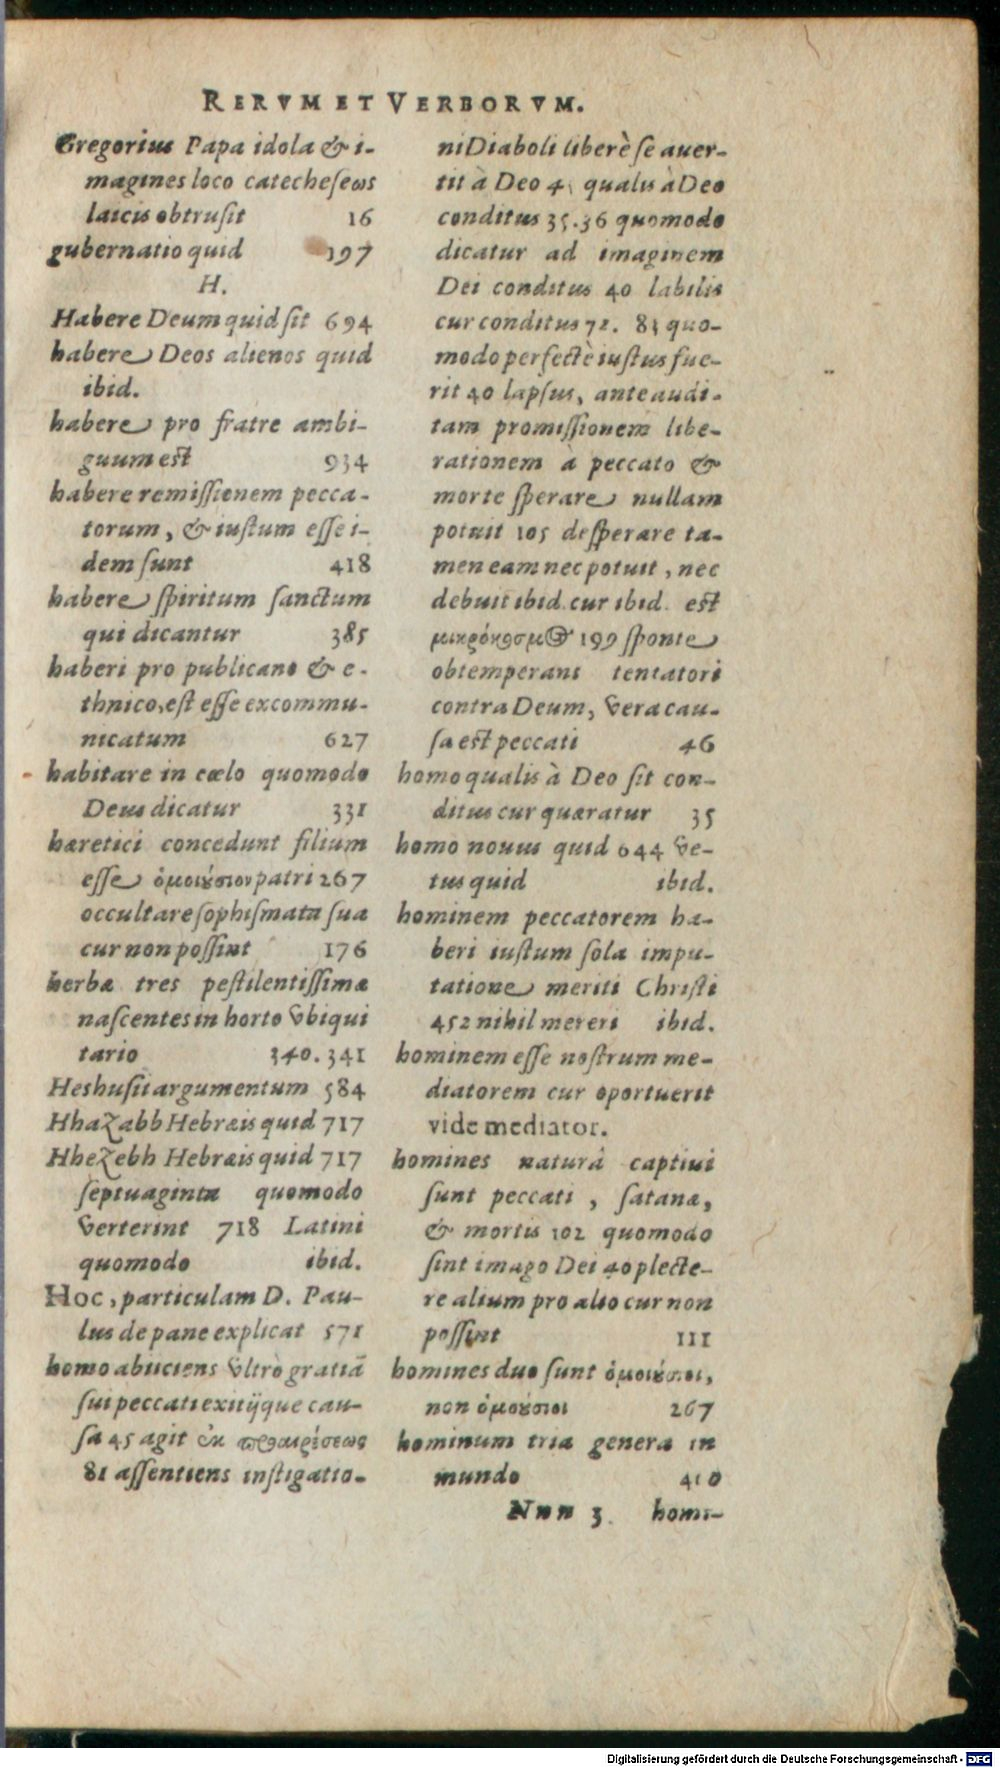 RERVM ET VERBORVM.
Gregorius Papa idola & i-
magines loco catecheseωs
laicis obtrusit 16
gubernatio quid 197
H.
Habere Deum quid sit 694
habere Deos alienos quid
ibid.
habere pro fratre ambi-
guum est 934
habere remissionem pecca-
torum, & iustum esse i-
dem sunt 418
habere spiritum sanctum
qui dicantur 385
haberi pro publicano & e-
thnico, est esse excommu-
nicatum 627
habitare in cœlo quomodo
Deus dicatur 331
hæretici concedunt filium
esse ὁμοιούσιον patri 267
occultare sophismata sua
cur non possint 176
herbæ tres pestilentissimæ
nascentes in horto vbiqui
tario 340. 341
Heshusii argumentum 584
Hhazabb Hebræis quid 717
Hhezebh Hebræis quid 717
septuaginta quomodo
verterint 718 Latini
quomodo ibid.
Hoc, particulam D. Pau-
lus de pane explicat 571
homo abiiciens vltrò gratiã
sui peccati exitijque cau-
sa 45 agit ἐκ προαιρέσεως
81 assentiens instigatio-
ni Diaboli liberè se auer-
tit à Deo 4 qualis à Deo
conditus 35.36 quomodo
dicatur ad imaginem
Dei conditus 40 labilis
cur conditus 72. 83 quo-
modo perfectè iustus fue-
rit 40 lapsus, ante audi-
tam promissionem libe-
rationem à peccato &
morte sperare nullam
potuit 105 desperare ta-
men eam nec potuit, nec
debuit ibid. cur ibid. est
μικρόκοσμος 199 sponte
obtemperans tentatori
contra Deum, vera cau-
sa est peccati 46
homo qualis à Deo sit con-
ditus cur quæratur 35
homo nouus quid 644 ve-
tus quid ibid.
hominem peccatorem ha-
beri iustum sola impu-
tatione meriti Christi
452 nihil mereri ibid.
hominem esse nostrum me-
diatorem cur oportuerit
vide mediator.
homines naturâ captiui
sunt peccati, satanæ,
& mortis 102 quomodo
sint imago Dei 40 plecte-
re alium pro alio cur non
possint 111
homines duo sunt ὁμοιούσιοι,
non ὁμοούσιοι 267
hominum tria genera in
mundo 410
Nnn 3. homi-
Digitalisierung gefördert durch die Deutsche Forschungsgemeinschaft - DFG